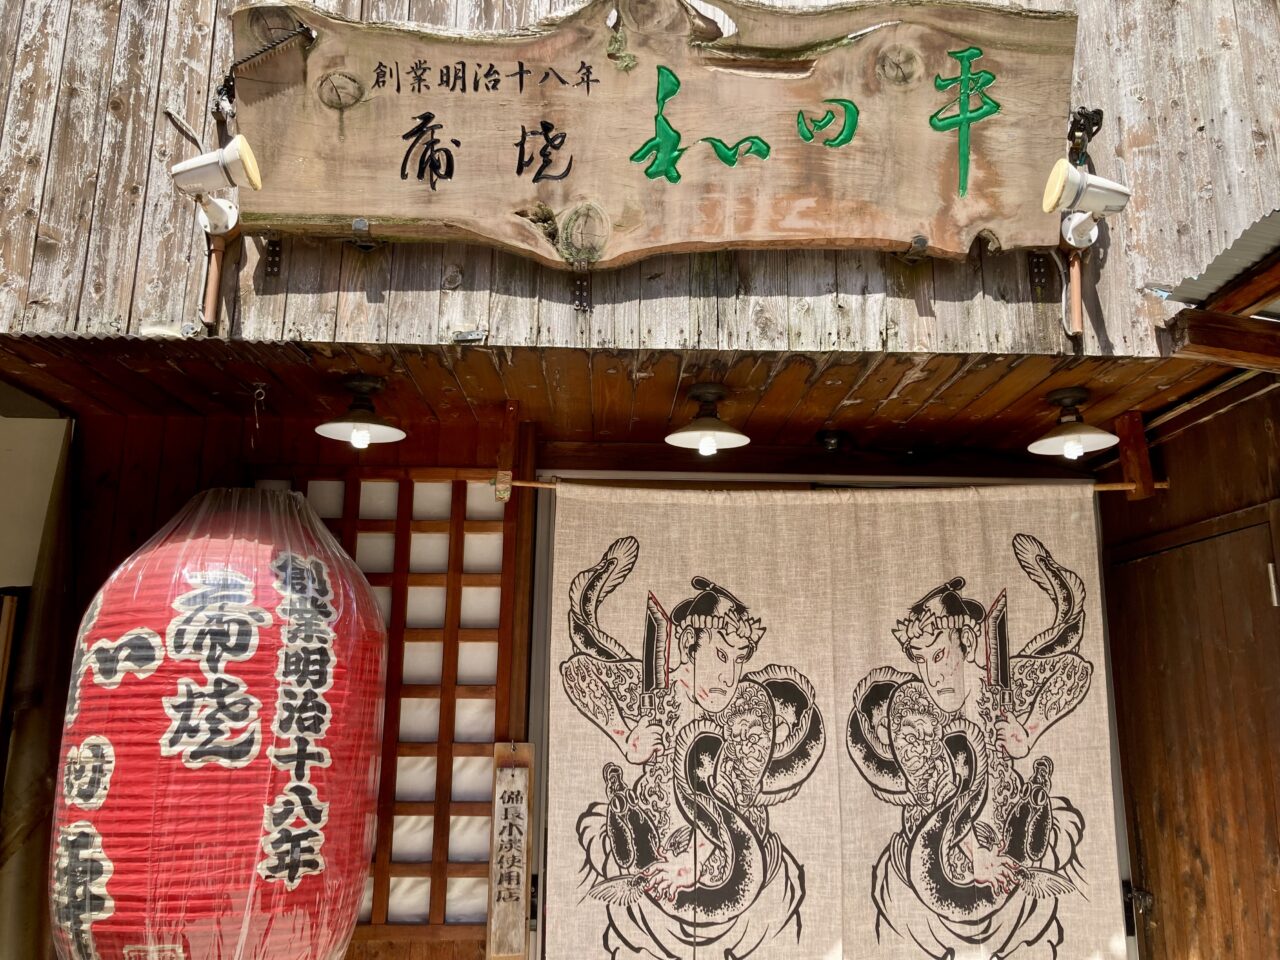 創業明治十八年
蒲焼 和田平
創業明治十八年
蒲焼
備長小炭使用店